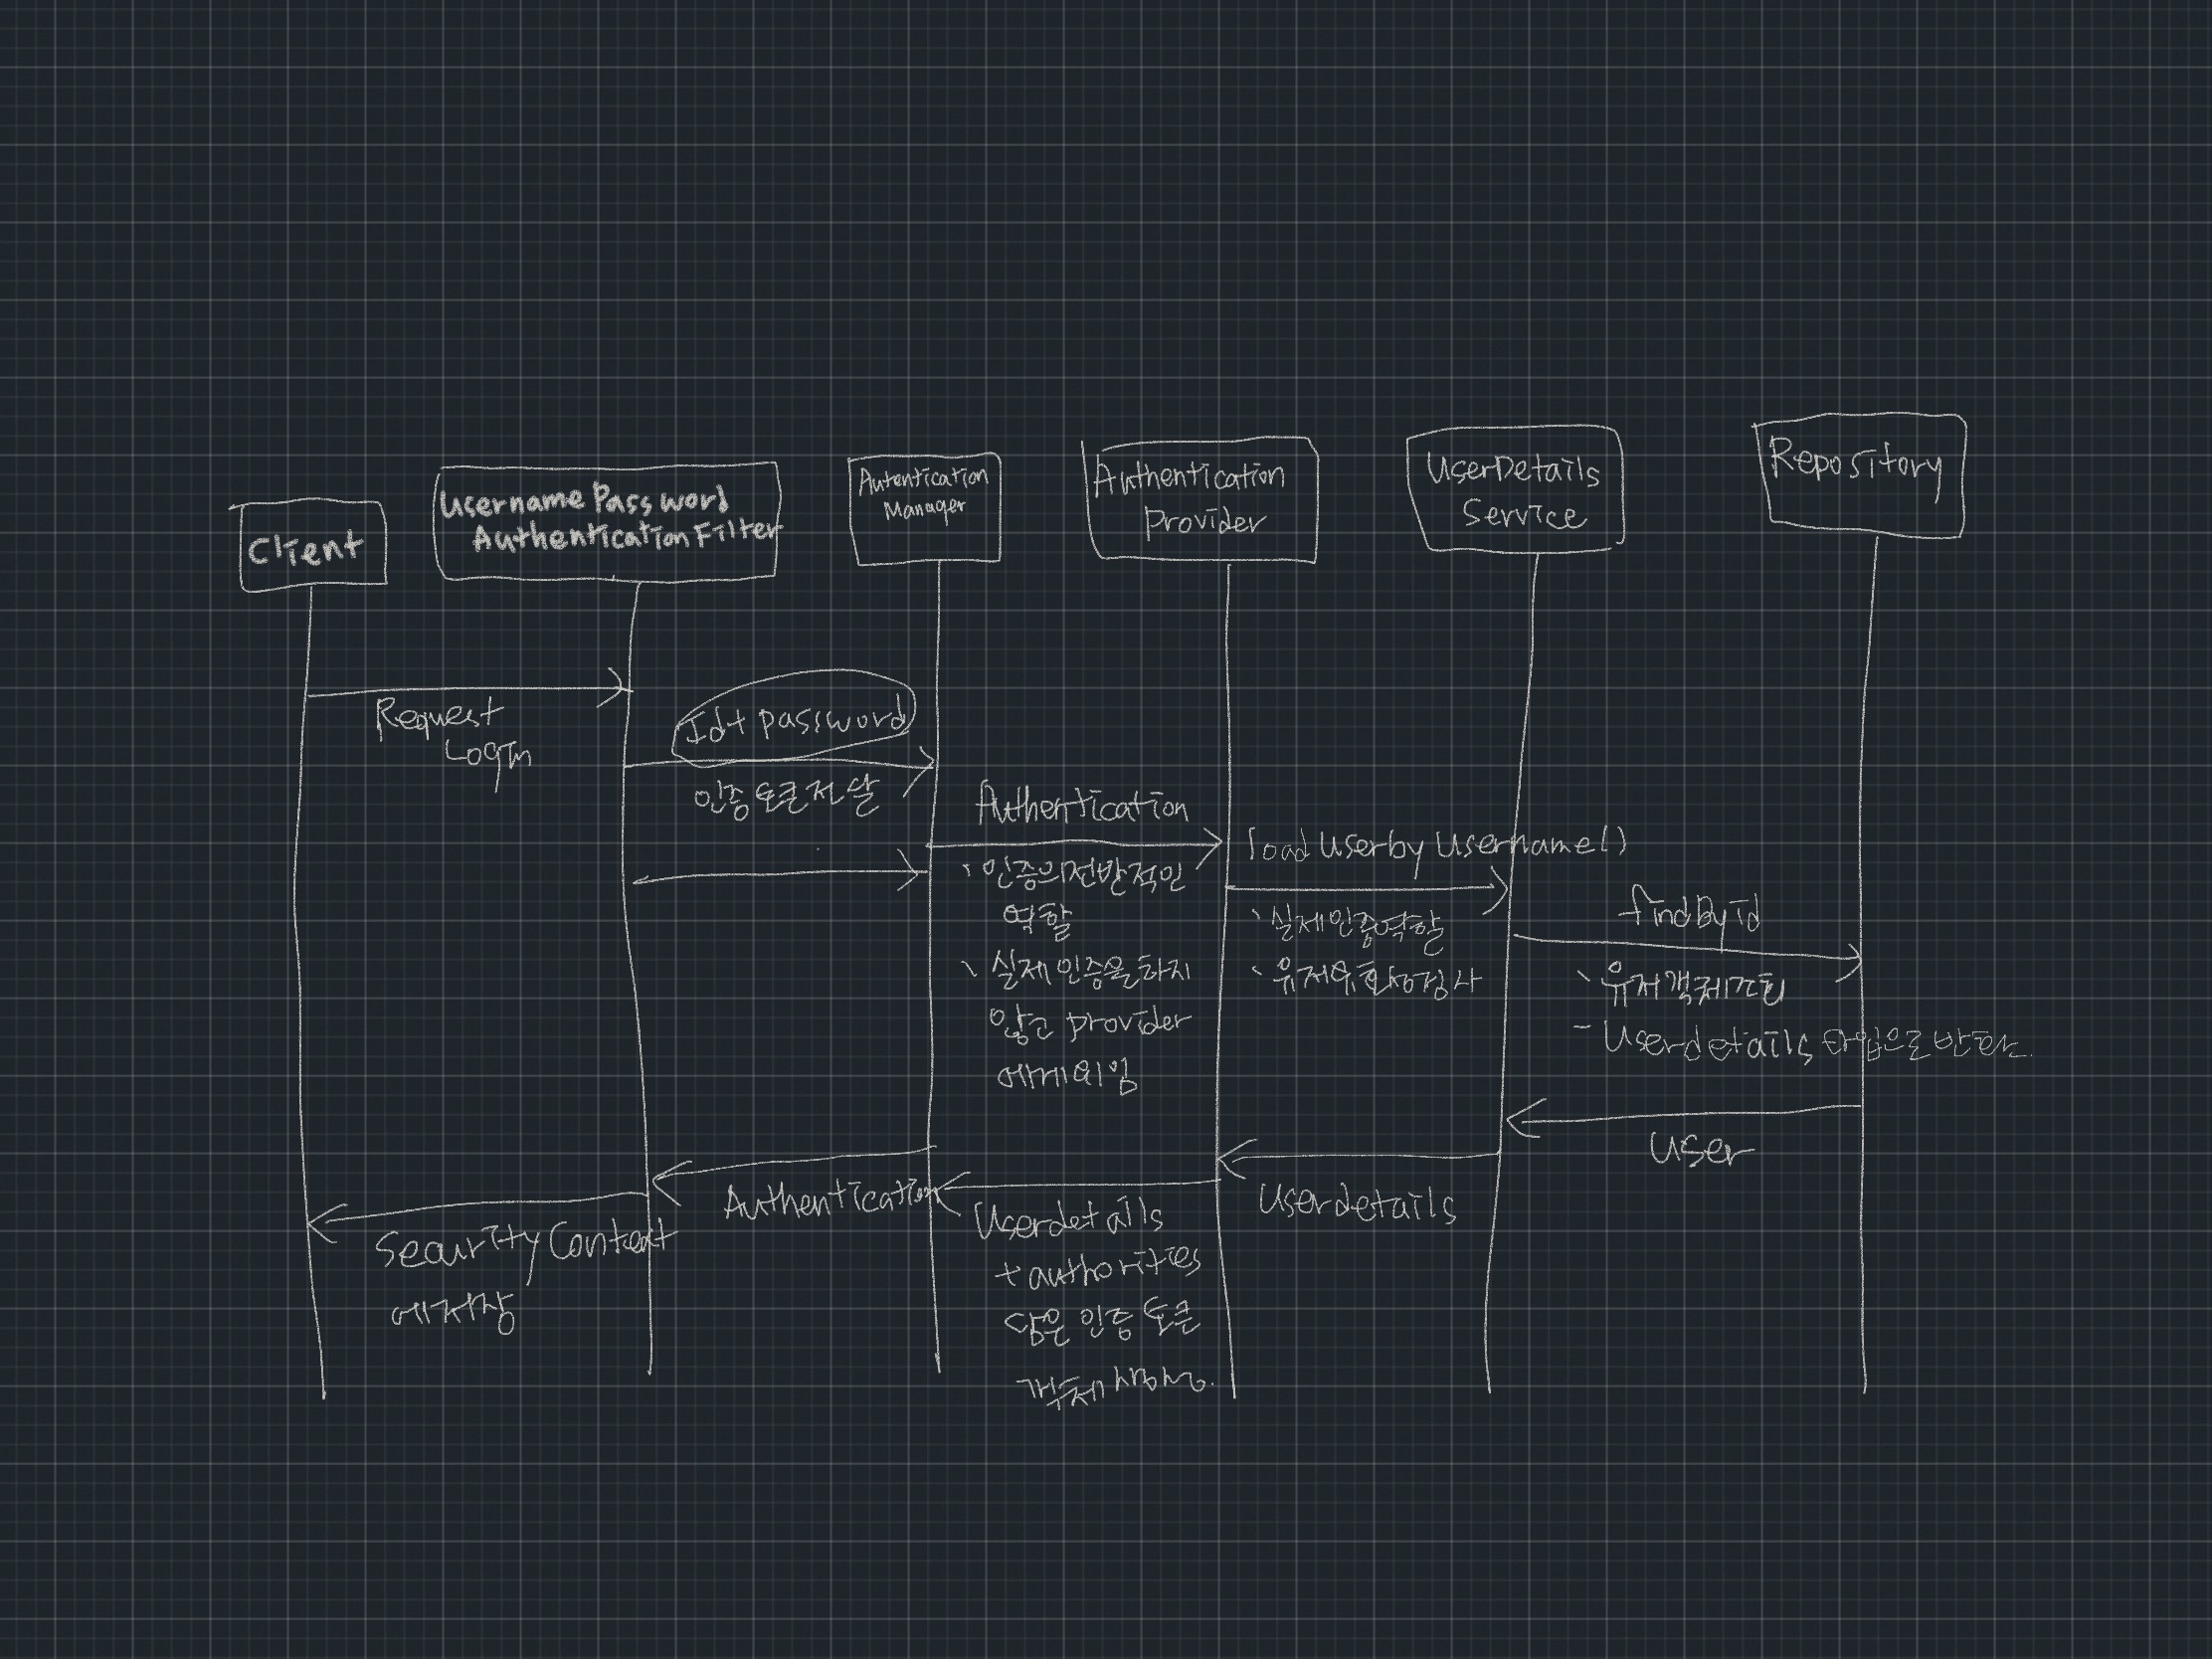 Client
UsernamePassword
AuthenticationFilter
Autentication
Manager
Authentication
Provider
UserDetails
Service
Repository
Request
Login
Id+ password
인증 토큰 전달
Authentication
· 인증의 전반적인
역할
· 실제 인증을 하지
않고 provider
에게 위임
load Userby Username()
· 실제 인증역할
· 유저 유효성검사
findById
· 유저객체조회
- Userdetails 타입으로 반환.
User
Userdetails
Userdetails
+ authorities
담은 인증 토큰
객체 생성.
Authentication
Security Context
에 저장